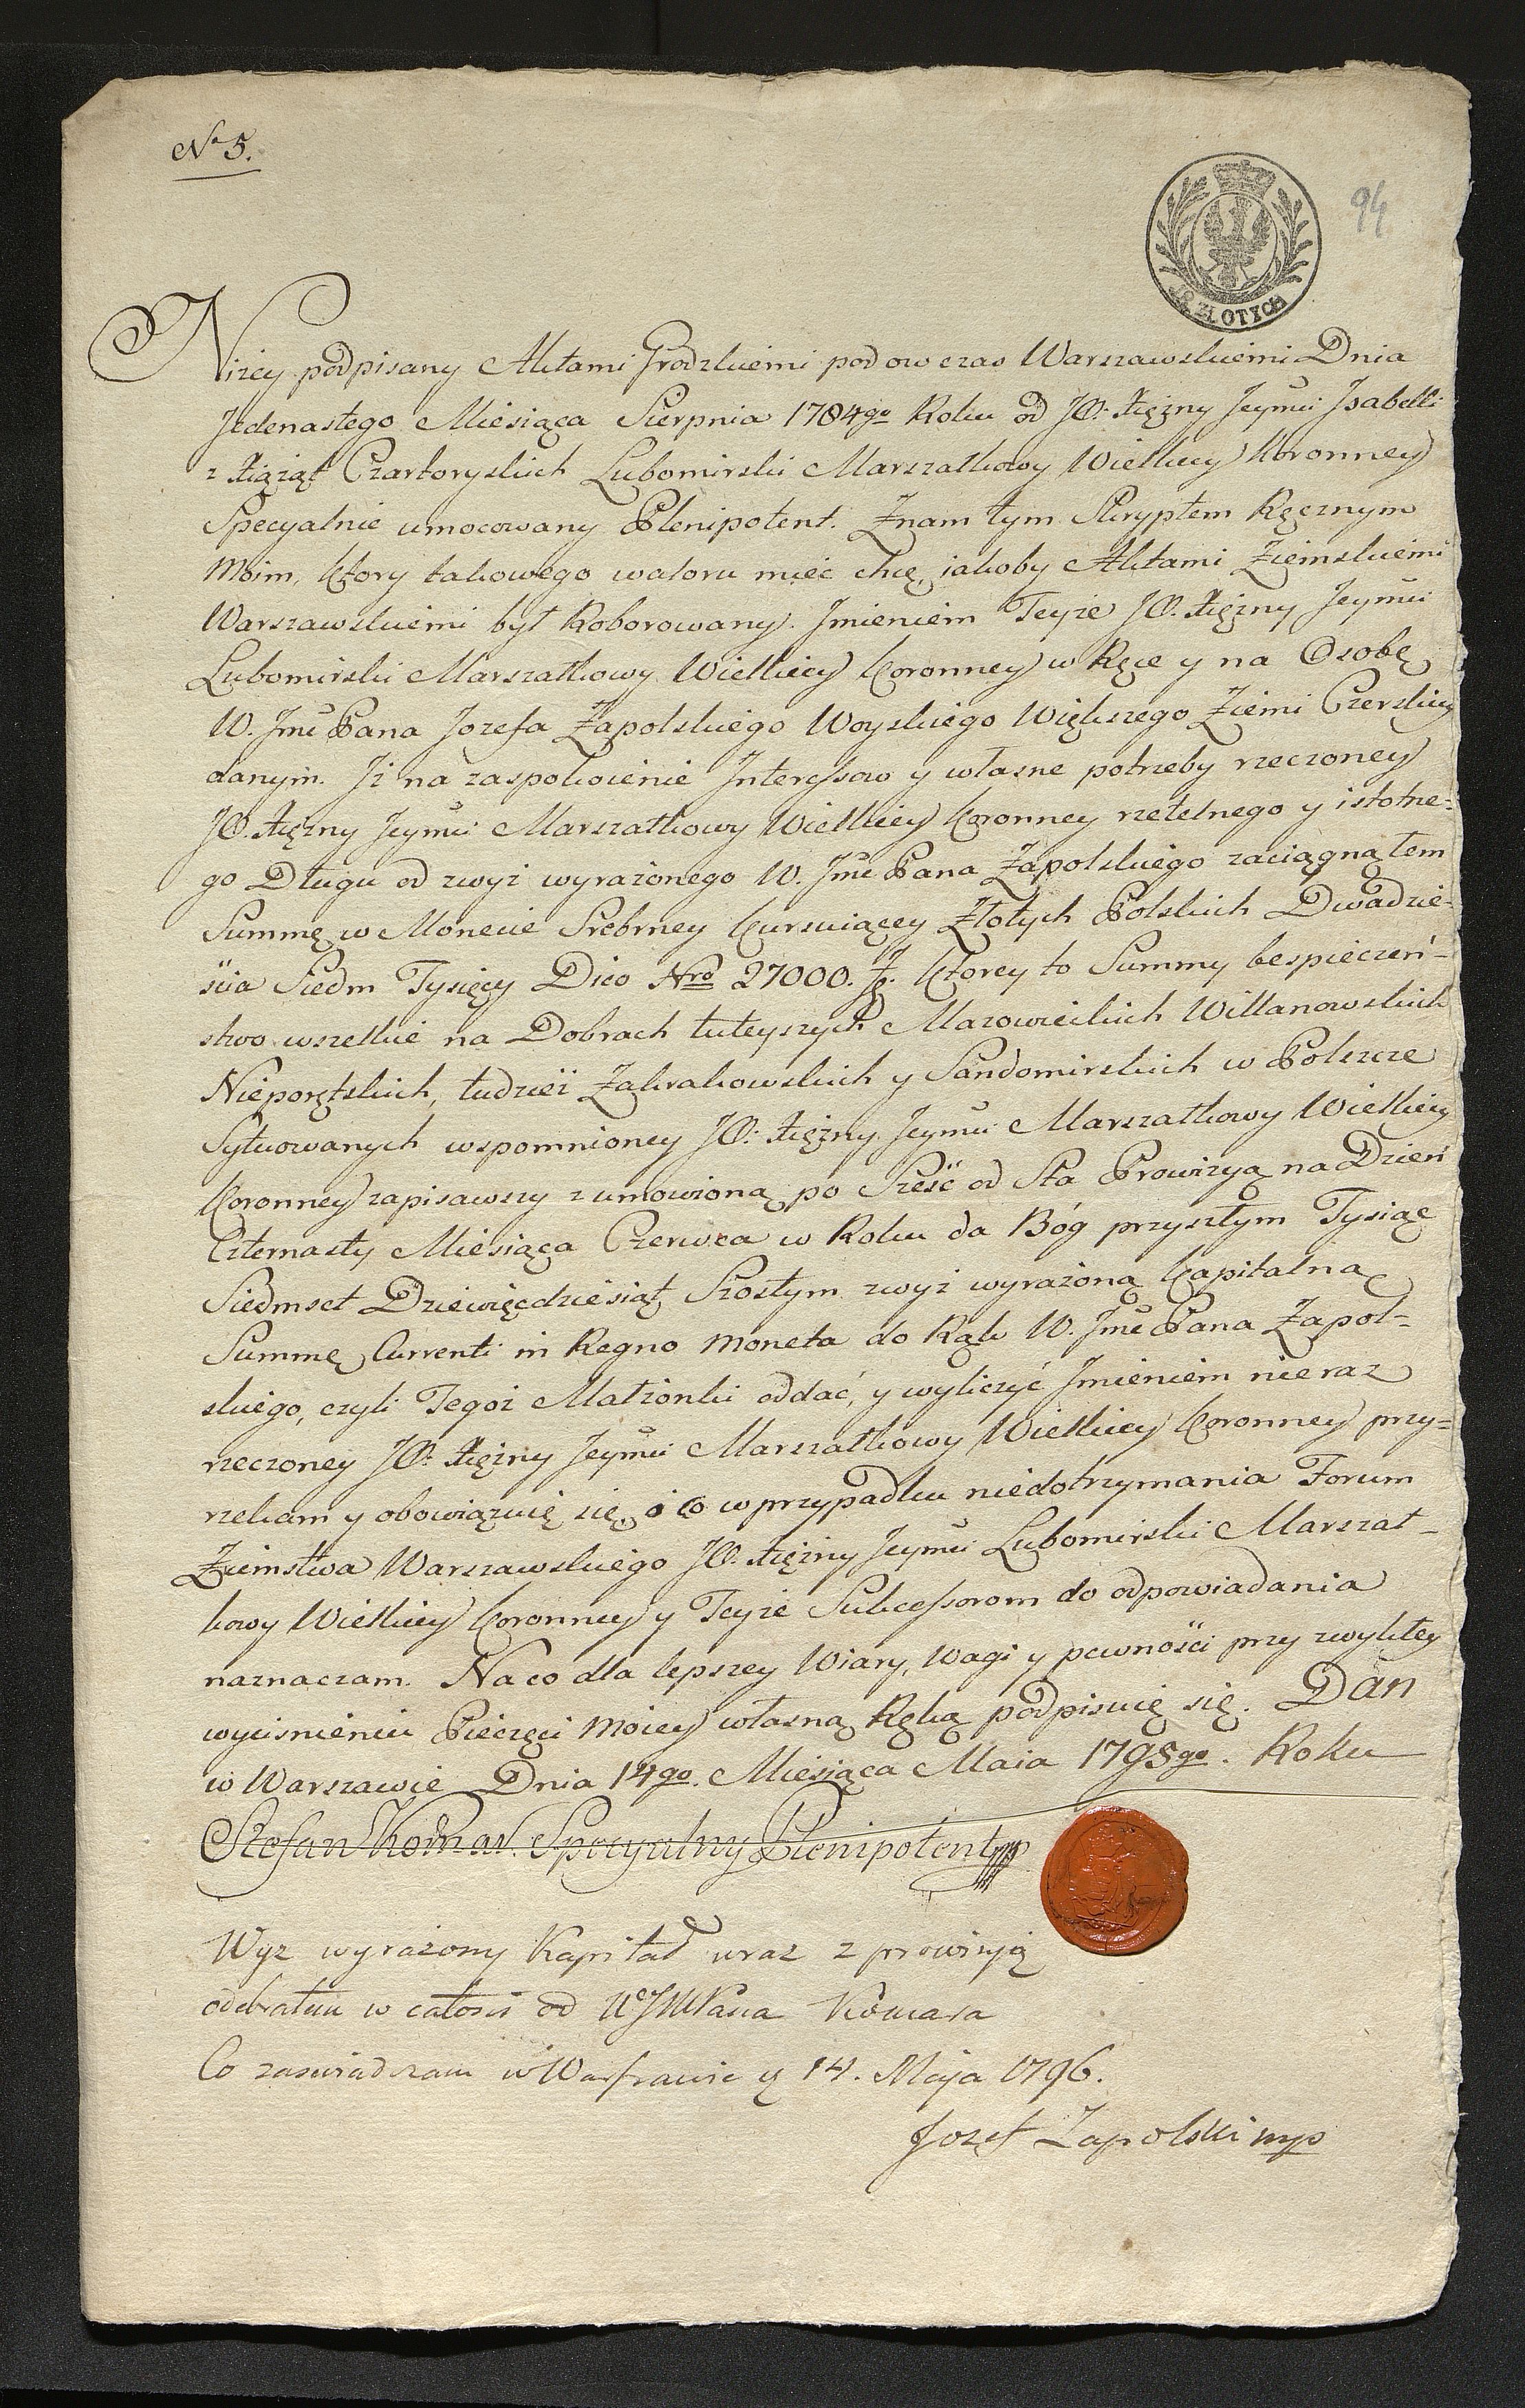 No 5.
94
12 ZŁOTYCH
Niżey podpisany Aktami Grodzkiemi podowczas Warszawskiemi Dnia
Jedenastego Miesiąca Sierpnia 1784go Roku od JO: Xiężny Jeymci Isabelli
z Xiążąt Czartoryskich Lubomirski Marszałkowy Wielkiey Koronney
Specyalnie umocowany Plenipotent. Znam tym Skryptem Ręcznym
Moim, Ktory takowego waloru mieć chcę, iakoby Aktami Ziemskiemi
Warszawskiemi był Roborowany. Jmieniem Teyże JO. Xiężny Jeymci
Lubomirski Marszałkowy Wielkiey Koronney w Ręce y na Osobę
W. Jmć Pana Jozefa Zapolskiego Woyskiego Większego Ziemi Czerskiey
danym. Jż na zaspokoienie Interessow y własne potrzeby rzeczoney
JO. Xiężny Jeymci Marszałkowy Wielkiey Koronney rzetelnego y istotne-
go Długu od zwyż wyrażonego W. Jmć Pana Zapolskiego zaciągnąłem
Summę w Monecie Srebrney Kursuiącey Złotych Polskich Dwadzie-
ścia Siedm Tysięcy Dico Nro 27000. Zł. Ktorey to Summy bespieczeń-
stwo wszelkie na Dobrach tuteyszych Mazowieckich Willanowskich
Nieporętskich, tudzież Zakrakowskich y Sandomirskich w Polszcze
Sytuowanych wspomnioney JO: Xiężny Jeymci Marszałkowy Wielkiey
Koronney zapisawszy z umowioną po Sześć od Sta Prowizyą na Dzień
Czternasty Miesiąca Czerwca w Roku da Bóg przyszłym Tysiąc
Siedmset Dziewięćdziesiąt Szostym zwyż wyrażoną Kapitalną
Summę Currenti in Regno Moneta do Rąk W. Jmć Pana Zapol-
skiego, czyli Tegoż Małżonki oddać, y wyliczyć Jmieniem nieraz
rzeczoney JO: Xiężny Jeymci Marszałkowy Wielkiey Koronney przy-
rzekam y obowiązuię się, o co w przypadku niedotrzymania Forum
Ziemstwa Warszawskiego JO. Xiężny Jeymci Lubomirski Marszał-
kowy Wielkiey Koronney y Teyże Sukcessorom do odpowiadania
naznaczam. Na co dla lepszey Wiary, Wagi y pewności przy zwykłey
wyciśnieniu Pieczęci Moiey własną Ręką podpisuię się. Dan
w Warszawie Dnia 14go. Miesiąca Maia 1795go. Roku
Stefan Komar. Specyalny Plenipotent mp
Wyż wyrażony Kapitał wraz z prowizyią
odebrałem w całości od WJMPana Komara
Co zaswiadczam w Warszawie d 14. Maja 1796.
Jozef Zapolski mp